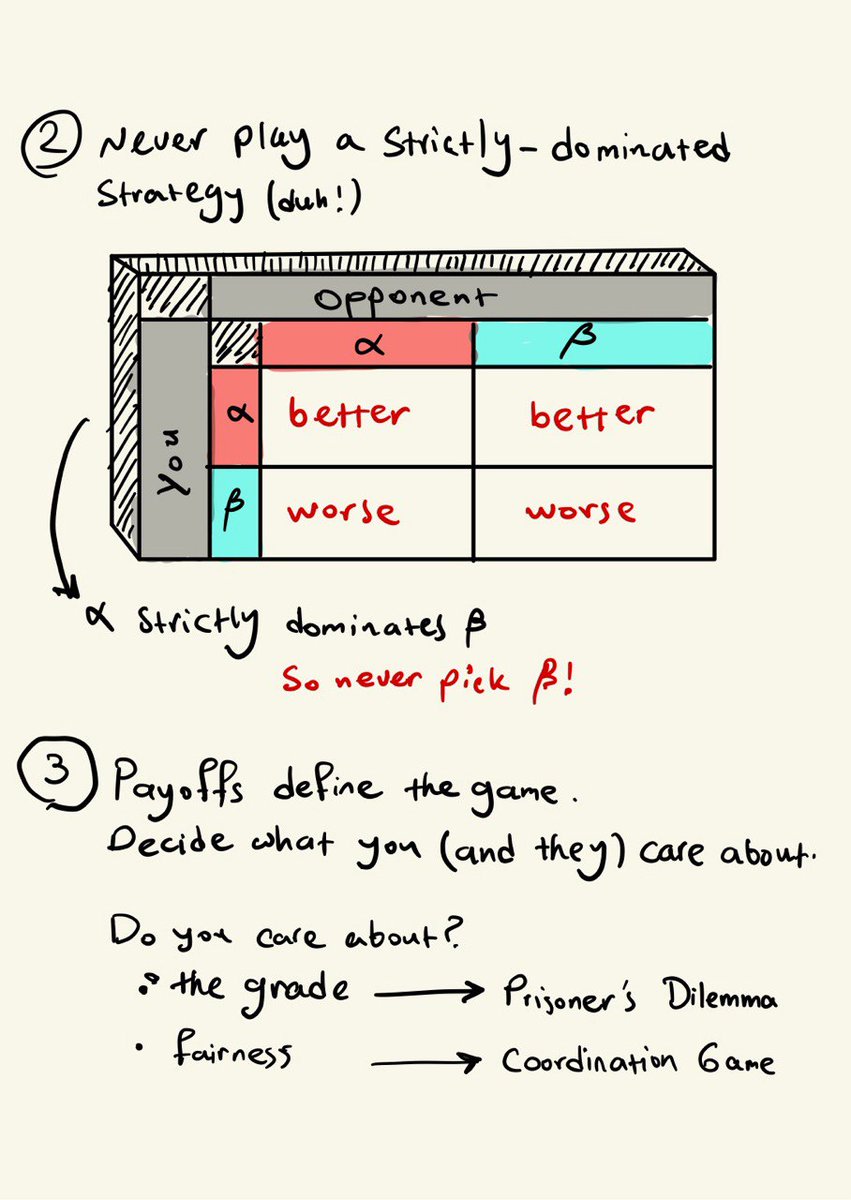 2 Never play a strictly-dominated
strategy (duh!)
Opponent
α β
You
α better better
β worse worse
α strictly dominates β
So never pick β!
3 Payoffs define the game.
Decide what you (and they) care about.
Do you care about?
• the grade → Prisoner's Dilemma
• fairness → Coordination Game